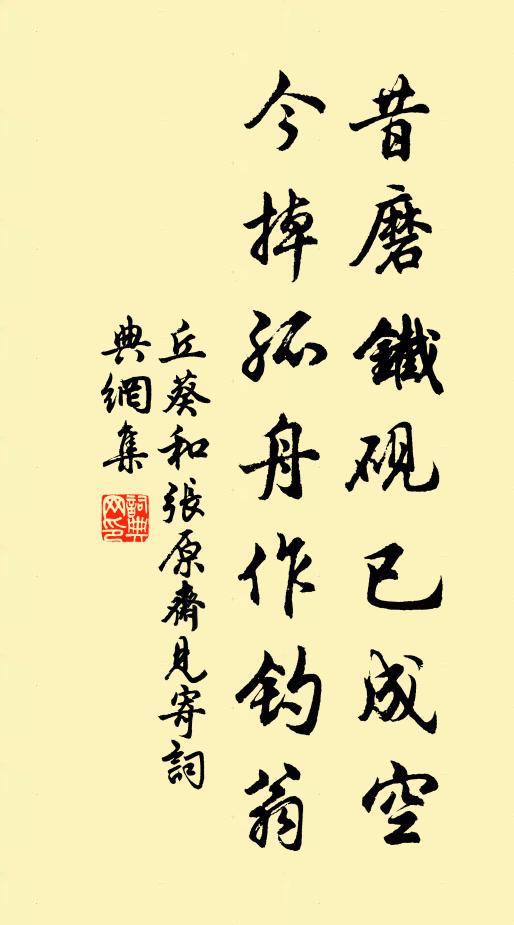 昔磨鐵硯已成空
今掉孤舟作釣翁
丘葵和張原齋見寄詞
典網集
詞典網印